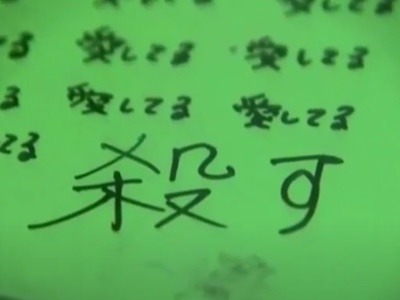 愛してる 愛してる
る 愛してる 愛してる
てる
殺す